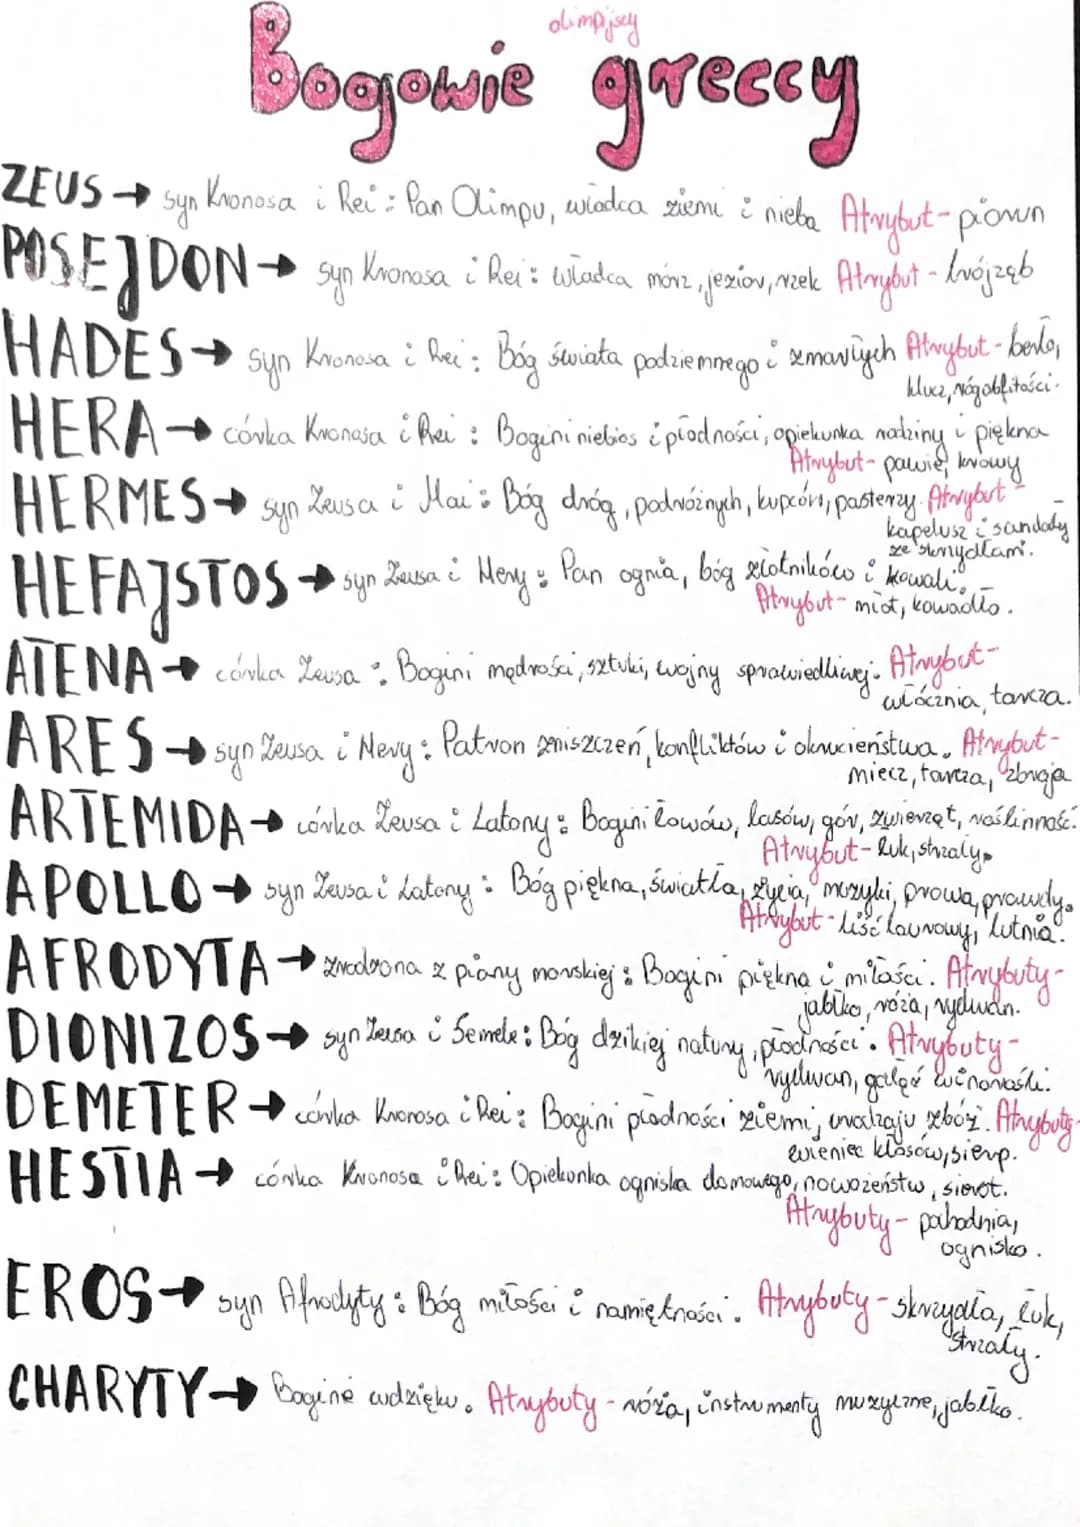 olimpijscy
Bogowie greccy
ZEUS → syn Kronosa i Rei : Pan Olimpu, władca ziemi i nieba Atrybut - piorun
POSEJDON → syn Kronosa i Rei : władca mórz, jezior, rzek Atrybut - trójząb
HADES → syn Kronosa i Rei : Bóg świata podziemnego i zmarłych Atrybut - berło,
klucz, róg obfitości.
HERA → córka Kronosa i Rei : Bogini niebios i płodności, opiekunka rodziny i piękna
Atrybut - pawie, krowy
HERMES → syn Zeusa i Mai : Bóg dróg, podróżnych, kupców, pasterzy. Atrybut -
kapelusz i sandały
ze skrzydłami.
HEFAJSTOS → syn Zeusa i Hery : Pan ognia, bóg złotników i kowali.
Atrybut - młot, kowadło.
ATENA → córka Zeusa : Bogini mądrości, sztuki, wojny sprawiedliwej. Atrybut -
włócznia, tarcza.
ARES → syn Zeusa i Hery : Patron zniszczeń, konfliktów i okrucieństwa. Atrybut -
miecz, tarcza, zbroja
ARTEMIDA → córka Zeusa i Latony : Bogini łowów, lasów, gór, zwierząt, roślinność.
Atrybut - łuk, strzały.
APOLLO → syn Zeusa i Latony : Bóg piękna, światła, życia, muzyki, prowa, prawdy.
Atrybut - liść laurowy, lutnia.
AFRODYTA → zrodzona z piany morskiej : Bogini piękna i miłości. Atrybuty -
jabłko, róża, rydwan.
DIONIZOS → syn Zeusa i Semele : Bóg dzikiej natury, płodności. Atrybuty -
rydwan, gałąź winorośli.
DEMETER → córka Kronosa i Rei : Bogini płodności ziemi, urodzaju zbóż. Atrybuty -
wieniec kłosów, sierp.
HESTIA → córka Kronosa i Rei : Opiekunka ogniska domowego, nowożeństw, sierot.
Atrybuty - pochodnia,
ognisko.
EROS → syn Afrodyty : Bóg miłości i namiętności. Atrybuty - skrzydła, łuk,
strzały.
CHARYTY → Boginie wdzięku. Atrybuty - róża, instrumenty muzyczne, jabłko.